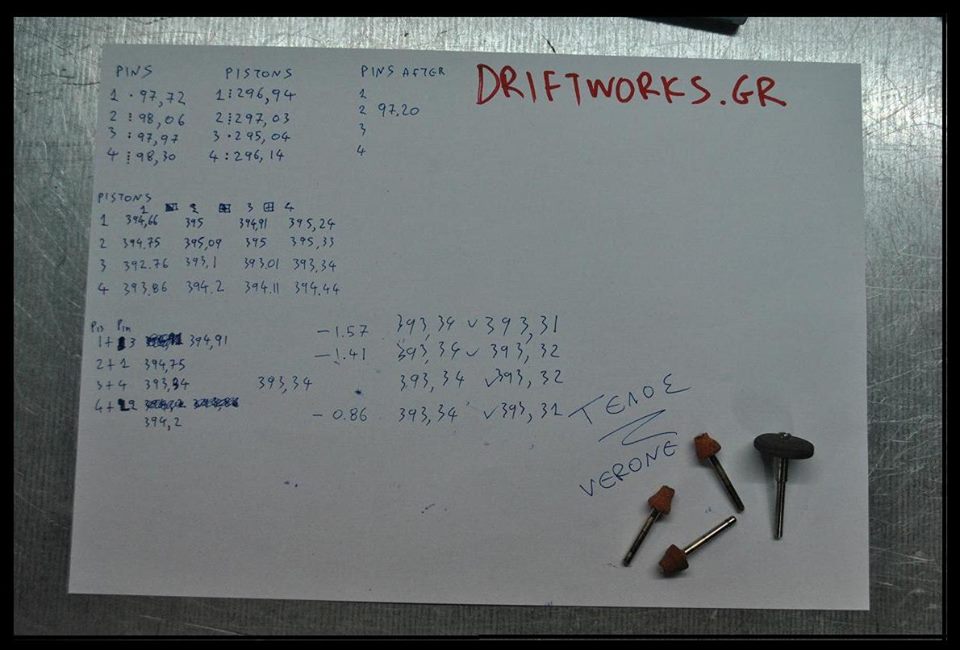 PINS PISTONS PINS AFTER DRIFTWORKS.GR
1 : 97,72 1 : 296,94 1
2 : 98,06 2 : 297,03 2 97.20
3 : 97,97 3 : 295,04 3
4 : 98,30 4 : 296,14 4
PISTONS
1 2 3 4
1 394,66 395 394,91 395,24
2 394.75 395,09 395 395,33
3 392.76 393,1 393.01 393,34
4 393.86 394.2 394.11 394.44
Pis Pin
1+3 394,91 -1.57 393,34 ✓ 393,31
2+1 394,75 -1.41 393,34 ✓ 393,32
3+4 393,34 393,34 393,34 ✓ 393,32
4+2 394,2 -0.86 393,34 ✓ 393,31
ΤΕΛΟΣ
VERONE